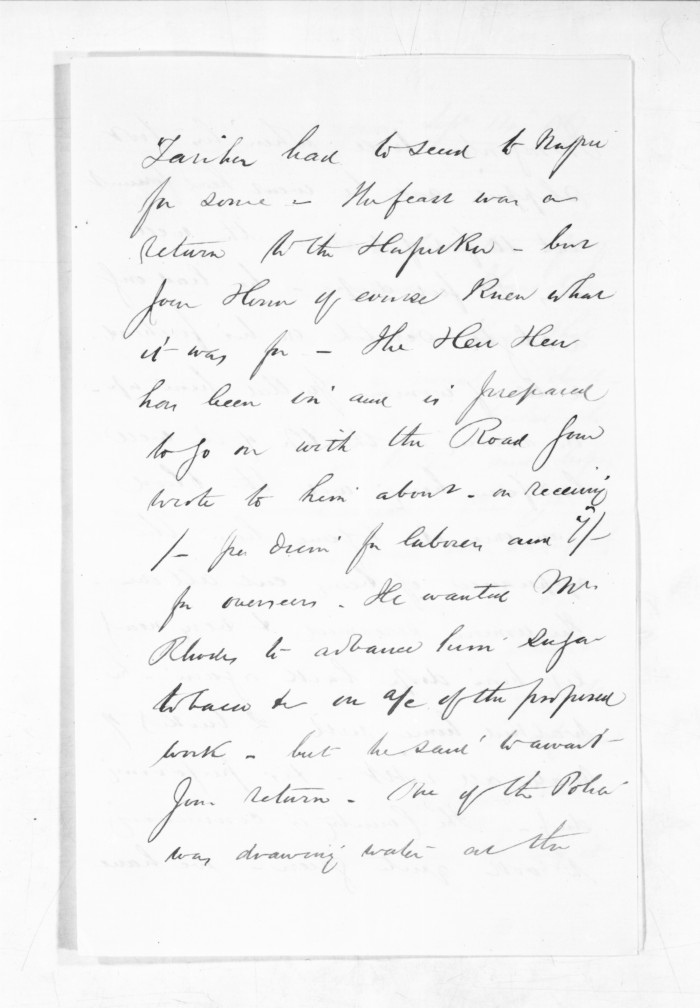 Tariha had to send to Napier
for some - The feast was a
return to the Hapuku - but
Your Honor of course knew what
it was for - The Heu Heu
has been in and is prepared
to go on with the Road you
wrote to him about - on receiving
/- per diem for laborers and 7/-
for overseers - He wanted Mr
Rhodes to advance him sugar
tobacco &c on a/c of the proposed
work - but he said to await
your return - One of the Police
was drawing water at the